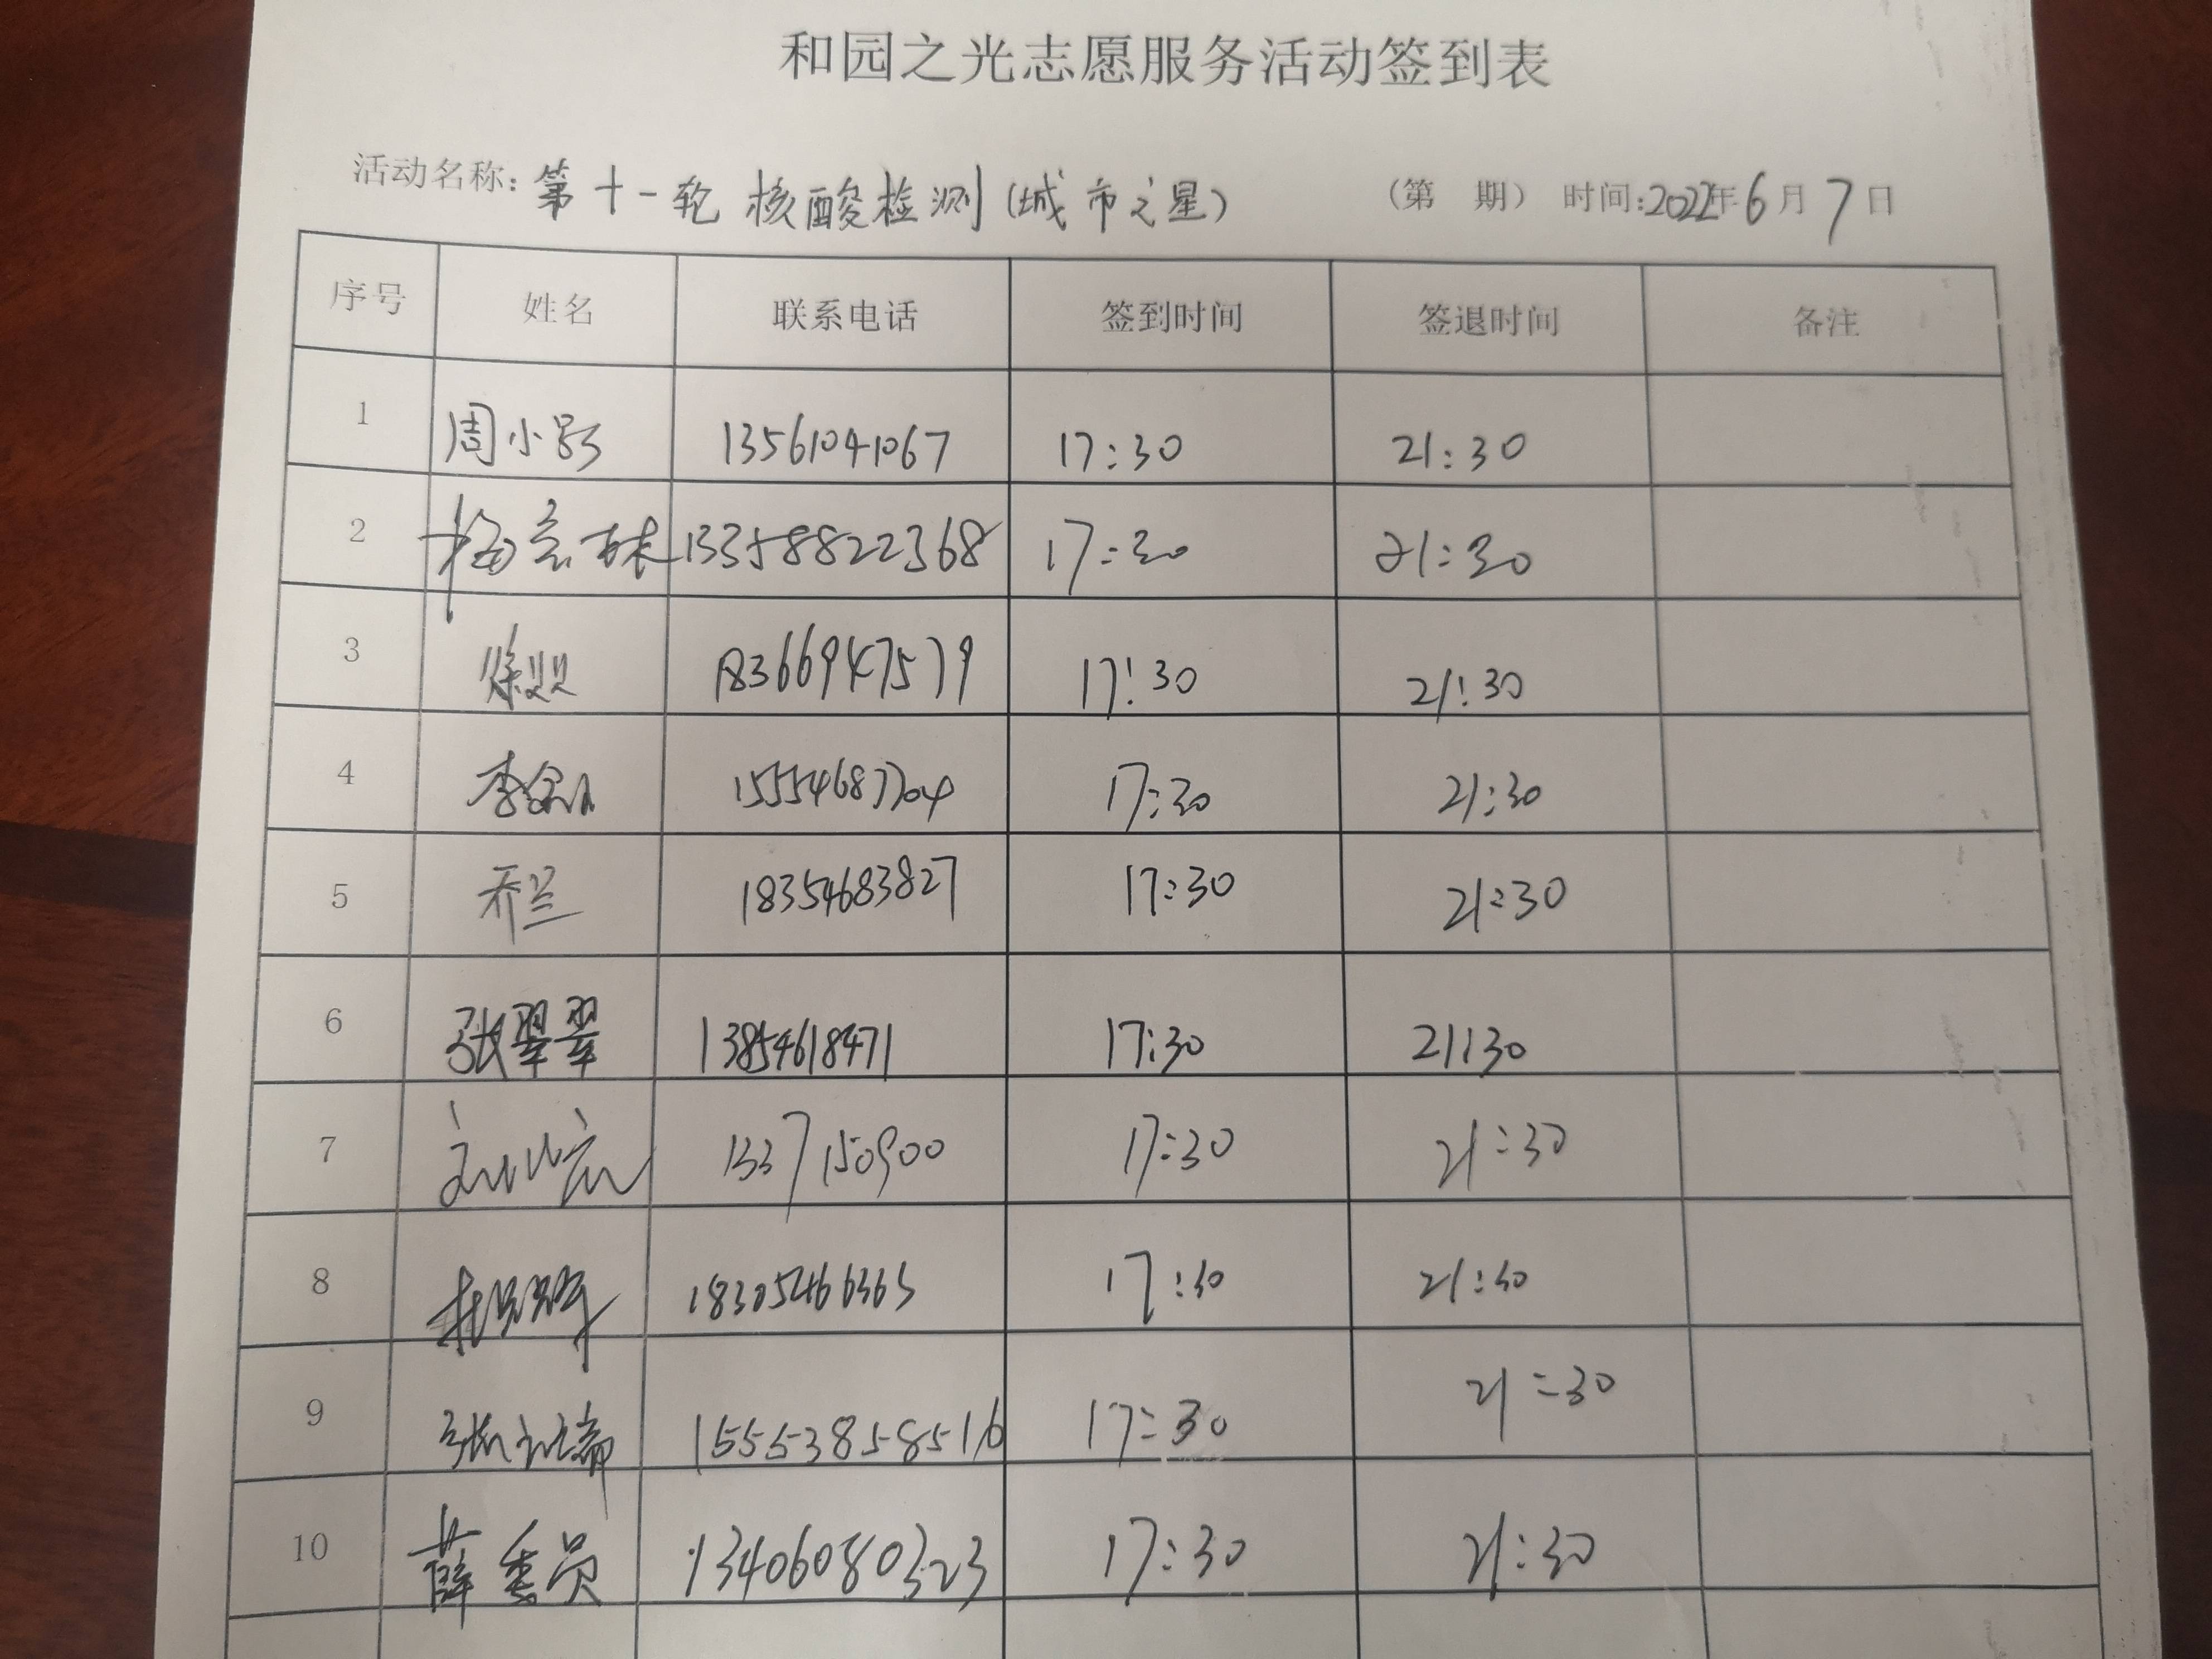 和园之光志愿服务活动签到表
活动名称:第十一轮 核酸检测(城市之星) (第 期) 时间:2022年6月7日
序号 姓名 联系电话 签到时间 签退时间 备注
1 周小影 13561041067 17:30 21:30
2 13358822368 17:30 21:30
3 徐双双 18366947579 17:30 21:30
4 15554687704 17:30 21:30
5 乔兰 18354683827 17:30 21:30
6 张翠翠 13854618471 17:30 21:30
7 1337150900 17:30 21:30
8 18305466363 17:30 21:30
9 15553858516 17:30 21:30
10 薛委员 13406080323 17:30 21:30